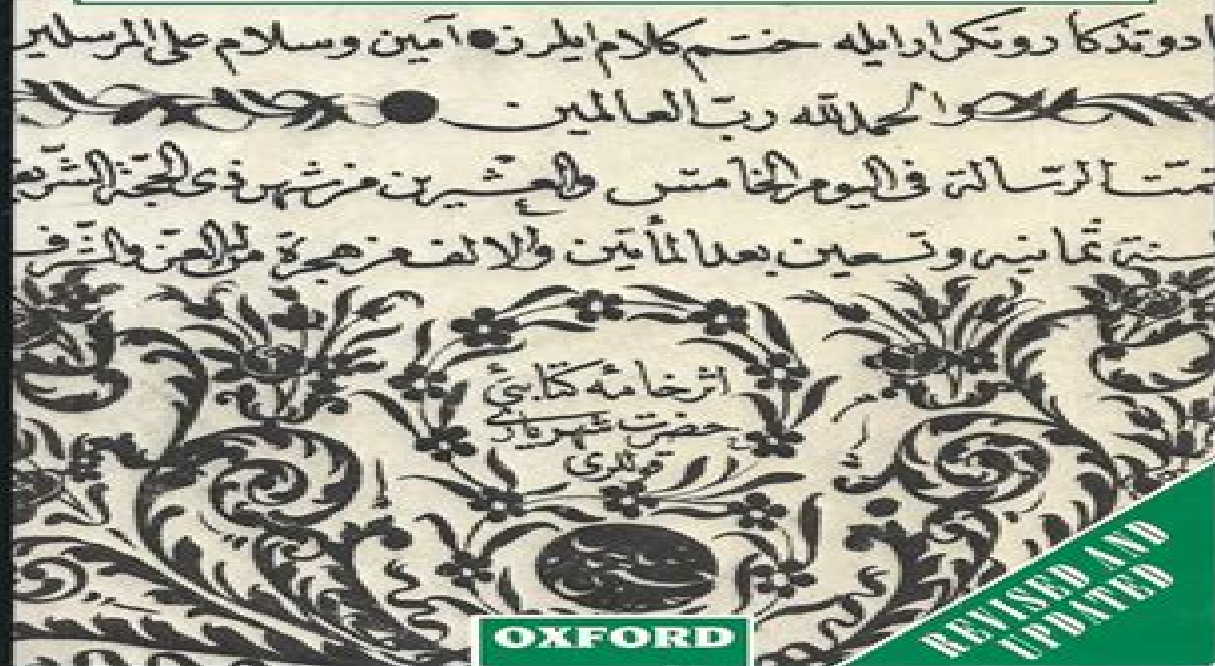 ختم كلام ايلرز آمين وسلام على المرسلين
والحمدلله رب العالمين
تمت الرسالة فى اليوم الخامس والعشرين من شهر ذى الحجة الشريفة
سنة ثمانية وتسعين بعد المأتين والالف من هجرة من له العز والشرف
اثر خامه
حضرت شهريارى
OXFORD
REVISED AND
UPDATED